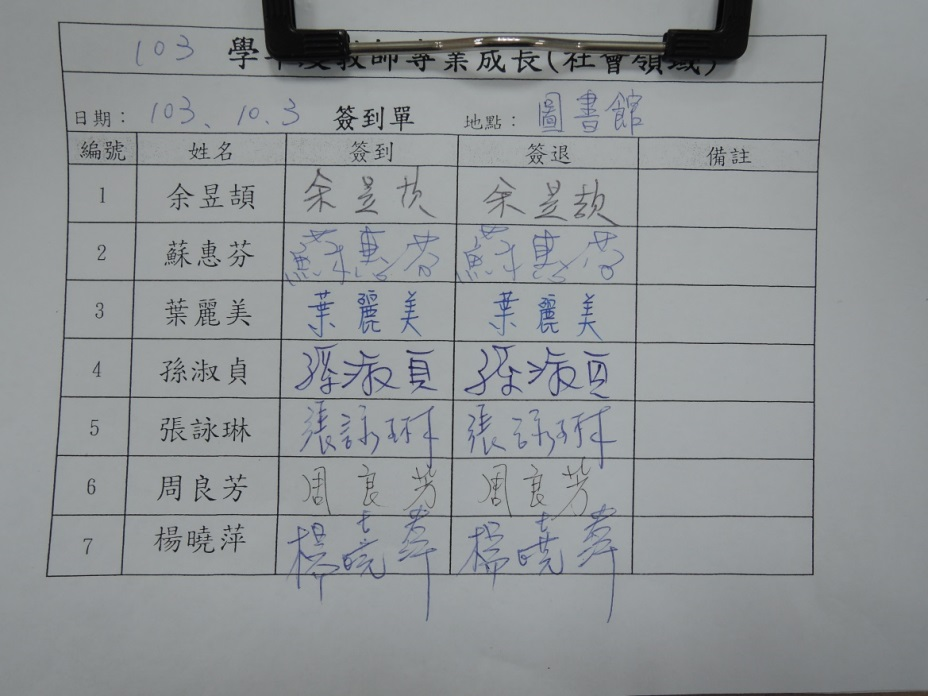 103 學年度教師專業成長(社會領域)
日期： 103. 10. 3 簽到單 地點： 圖書館
編號 姓名 簽到 簽退 備註
1 余昱頡 余昱頡 余昱頡
2 蘇惠芬 蘇惠芬 蘇惠芬
3 葉麗美 葉麗美 葉麗美
4 孫淑貞 孫淑貞 孫淑貞
5 張詠琳 張詠琳 張詠琳
6 周良芳 周良芳 周良芳
7 楊曉萍 楊曉萍 楊曉萍